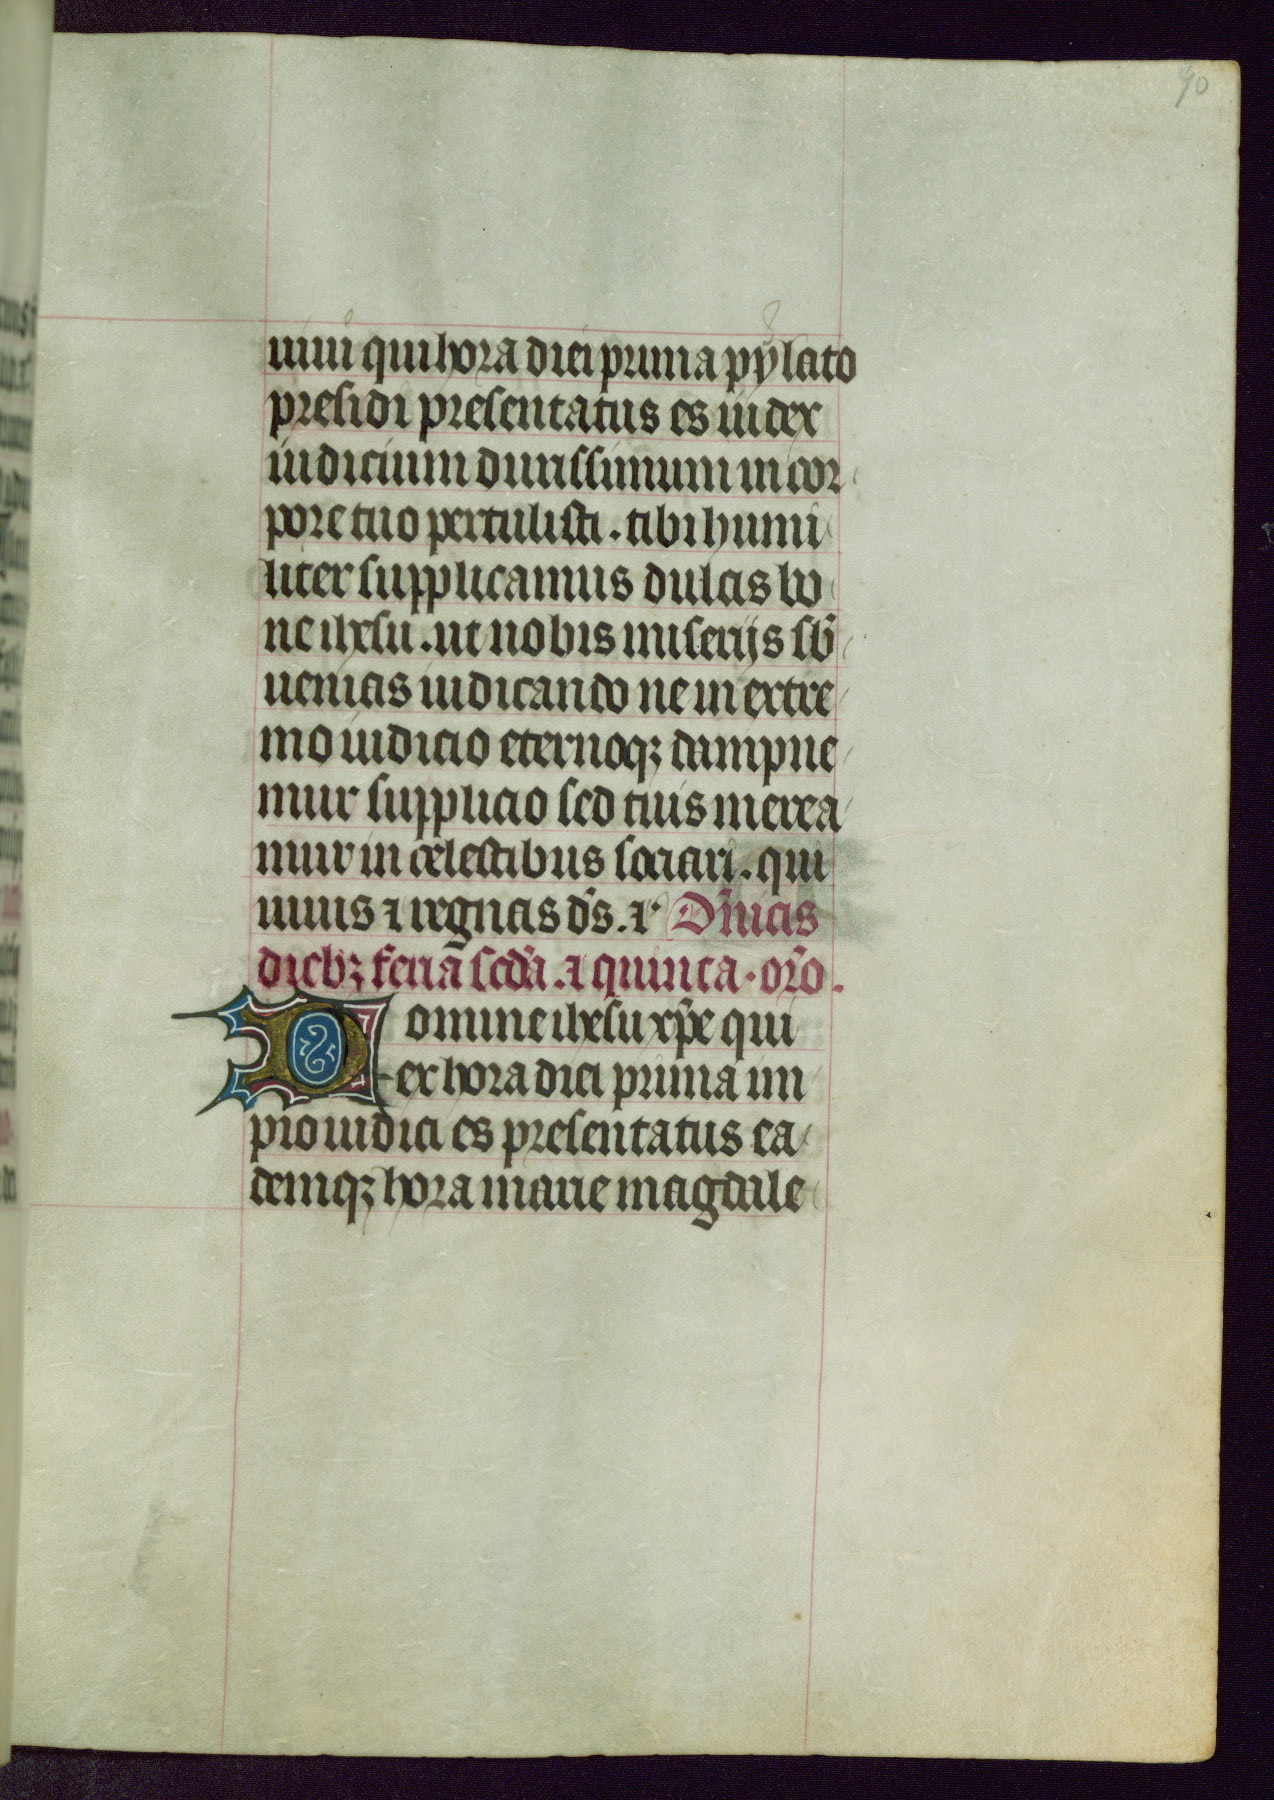 90
uiui qui hora diei prima pylato
presidi presentatus es iudex
iudicium durissimum in cor
pore tuo pertulisti. tibi humi
liter supplicamus dulcis bo
ne ihesu. ut nobis miserijs sb̄
uenias iudicando ne in extre
mo iudicio eternoqꝫ dampne
mur supplicio sed tuis merea
mur in celestibus sociari. qui
uiuis ⁊ regnas dn̄s. ⁊ Dn̄icis
diebꝫ feria scd̄a. ⁊ quinta. or̄o.
Domine ihesu xp̄e qui
ex hora diei prima im
pio iudici es presentatus ea
demqꝫ hora mane magdale